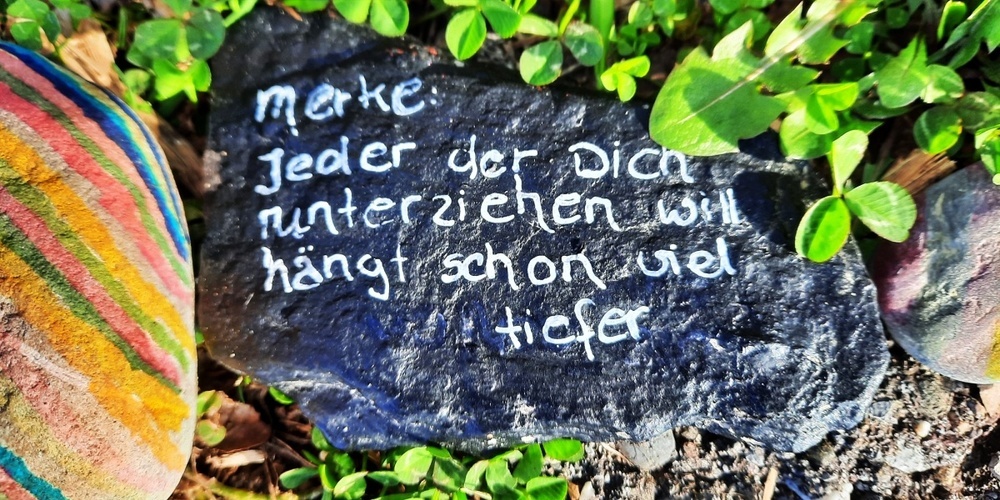 merke:
Jeder der Dich
runterziehen will
hängt schon viel
tiefer